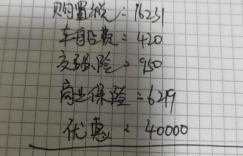 购置税：16231
车船税：420
交强险：950
商业保险=6219
优惠：40000